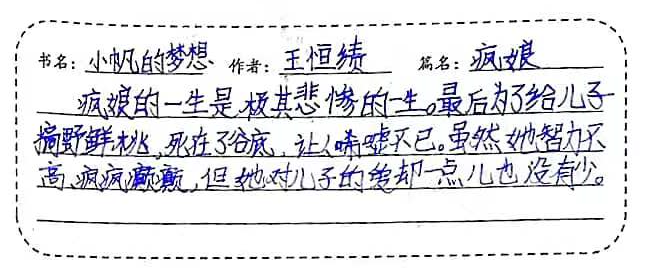 书名：小帆的梦想 作者：王恒绩 篇名：疯娘
疯娘的一生是极其悲惨的一生。最后为了给儿子
摘野鲜桃，死在了谷底，让人唏嘘不已。虽然她智力不
高，疯疯癫癫，但她对儿子的爱却一点儿也没有少。